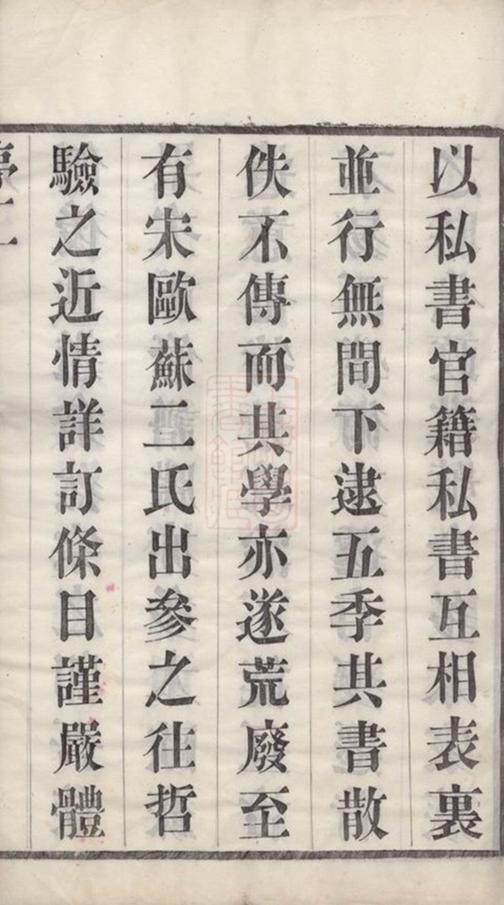 以私書官籍私書互相表裏
並行無間下逮五季其書散
佚不傳而其學亦遂荒廢至
有宋歐蘇二氏出參之往哲
驗之近情詳訂條目謹嚴體